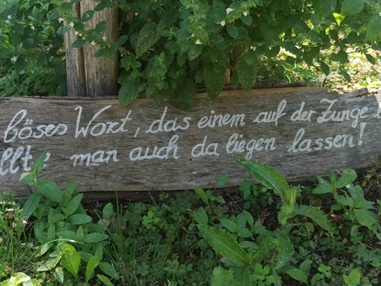 böses Wort, das einem auf der Zunge
man auch da liegen lassen!